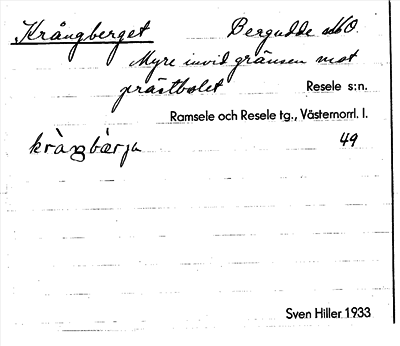 Krångberget Bergudde
Myre invid gränsen mot
prästbolet Resele s:n.
Ramsele och Resele tg., Västernorrl. l.
49
Sven Hiller 1933